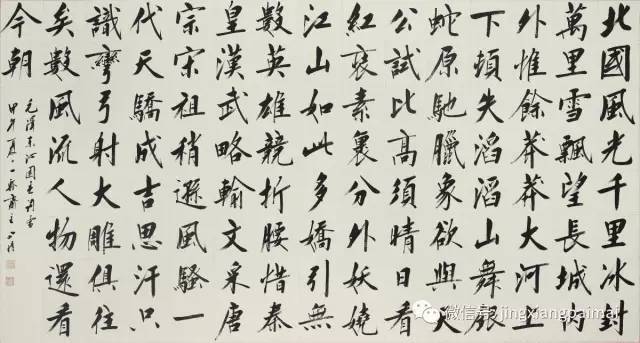 北國風光千里冰封
萬里雪飄望長城內
外惟餘莽莽大河上
下頓失滔滔山舞銀
蛇原馳臘象欲與天
公試比高須晴日看
紅裝素裹分外妖嬈
江山如此多嬌引無
數英雄競折腰惜秦
皇漢武略輸文采唐
宗宋祖稍遜風騷一
代天驕成吉思汗只
識彎弓射大雕俱往
矣數風流人物還看
今朝
毛澤東沁園春詞雪
甲午夏一
微信号: jingxiangpaimai